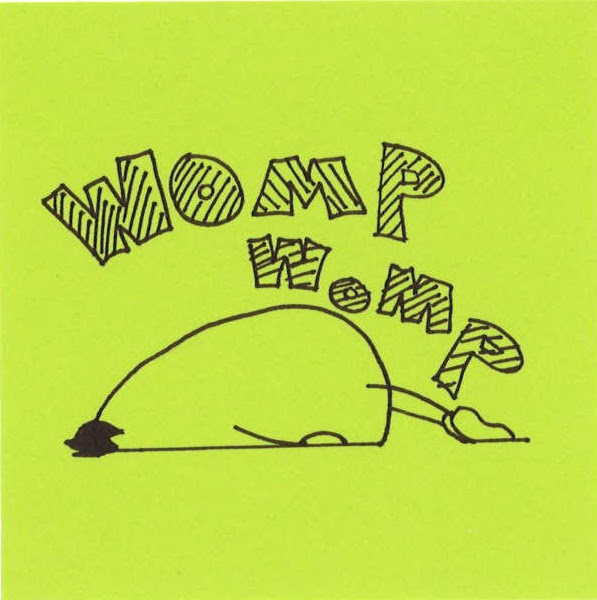 WOMP
WOMP